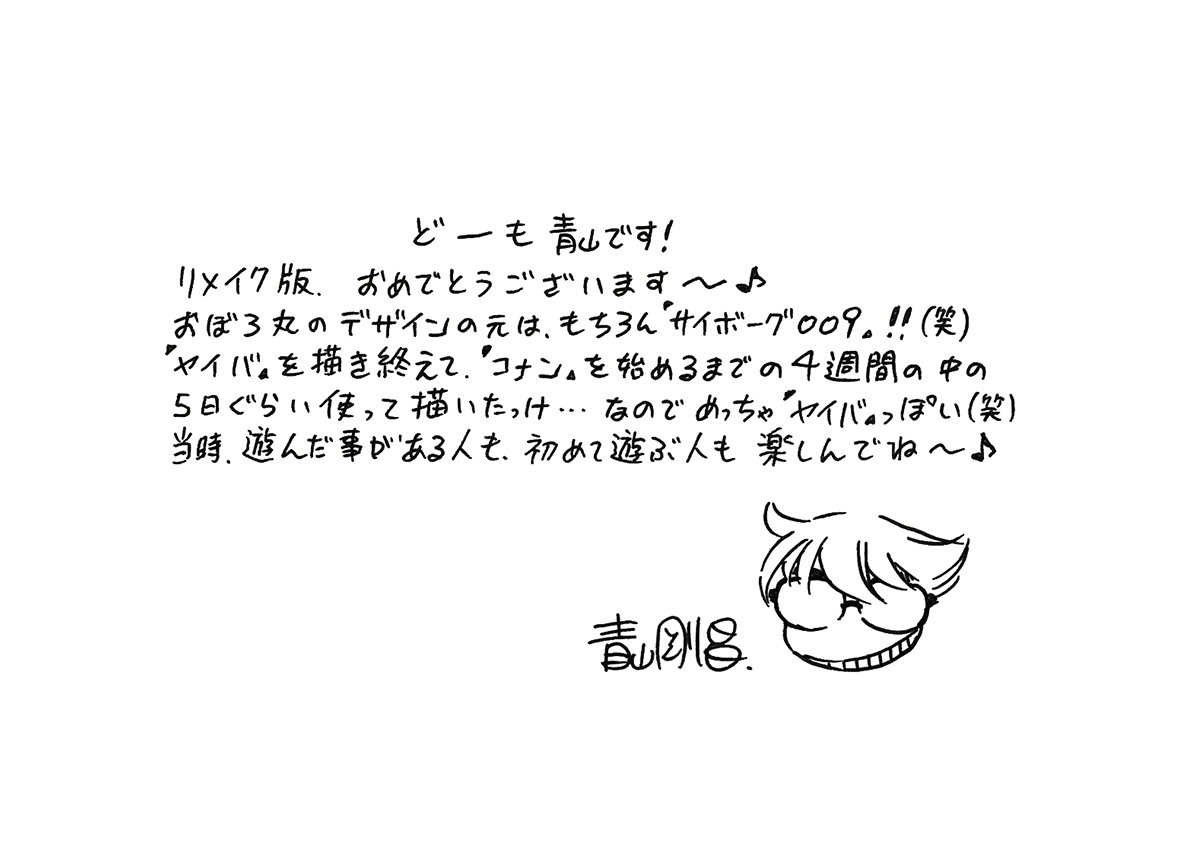 どーも青山です!
リメイク版、おめでとうございます〜♪
おぼろ丸のデザインの元は、もちろん『サイボーグ009』!!(笑)
『ヤイバ』を描き終えて、『コナン』を始めるまでの4週間の中の
5日ぐらい使って描いたっけ…なのでめっちゃ『ヤイバ』っぽい(笑)
当時、遊んだ事がある人も、初めて遊ぶ人も楽しんでね〜♪
青山剛昌.